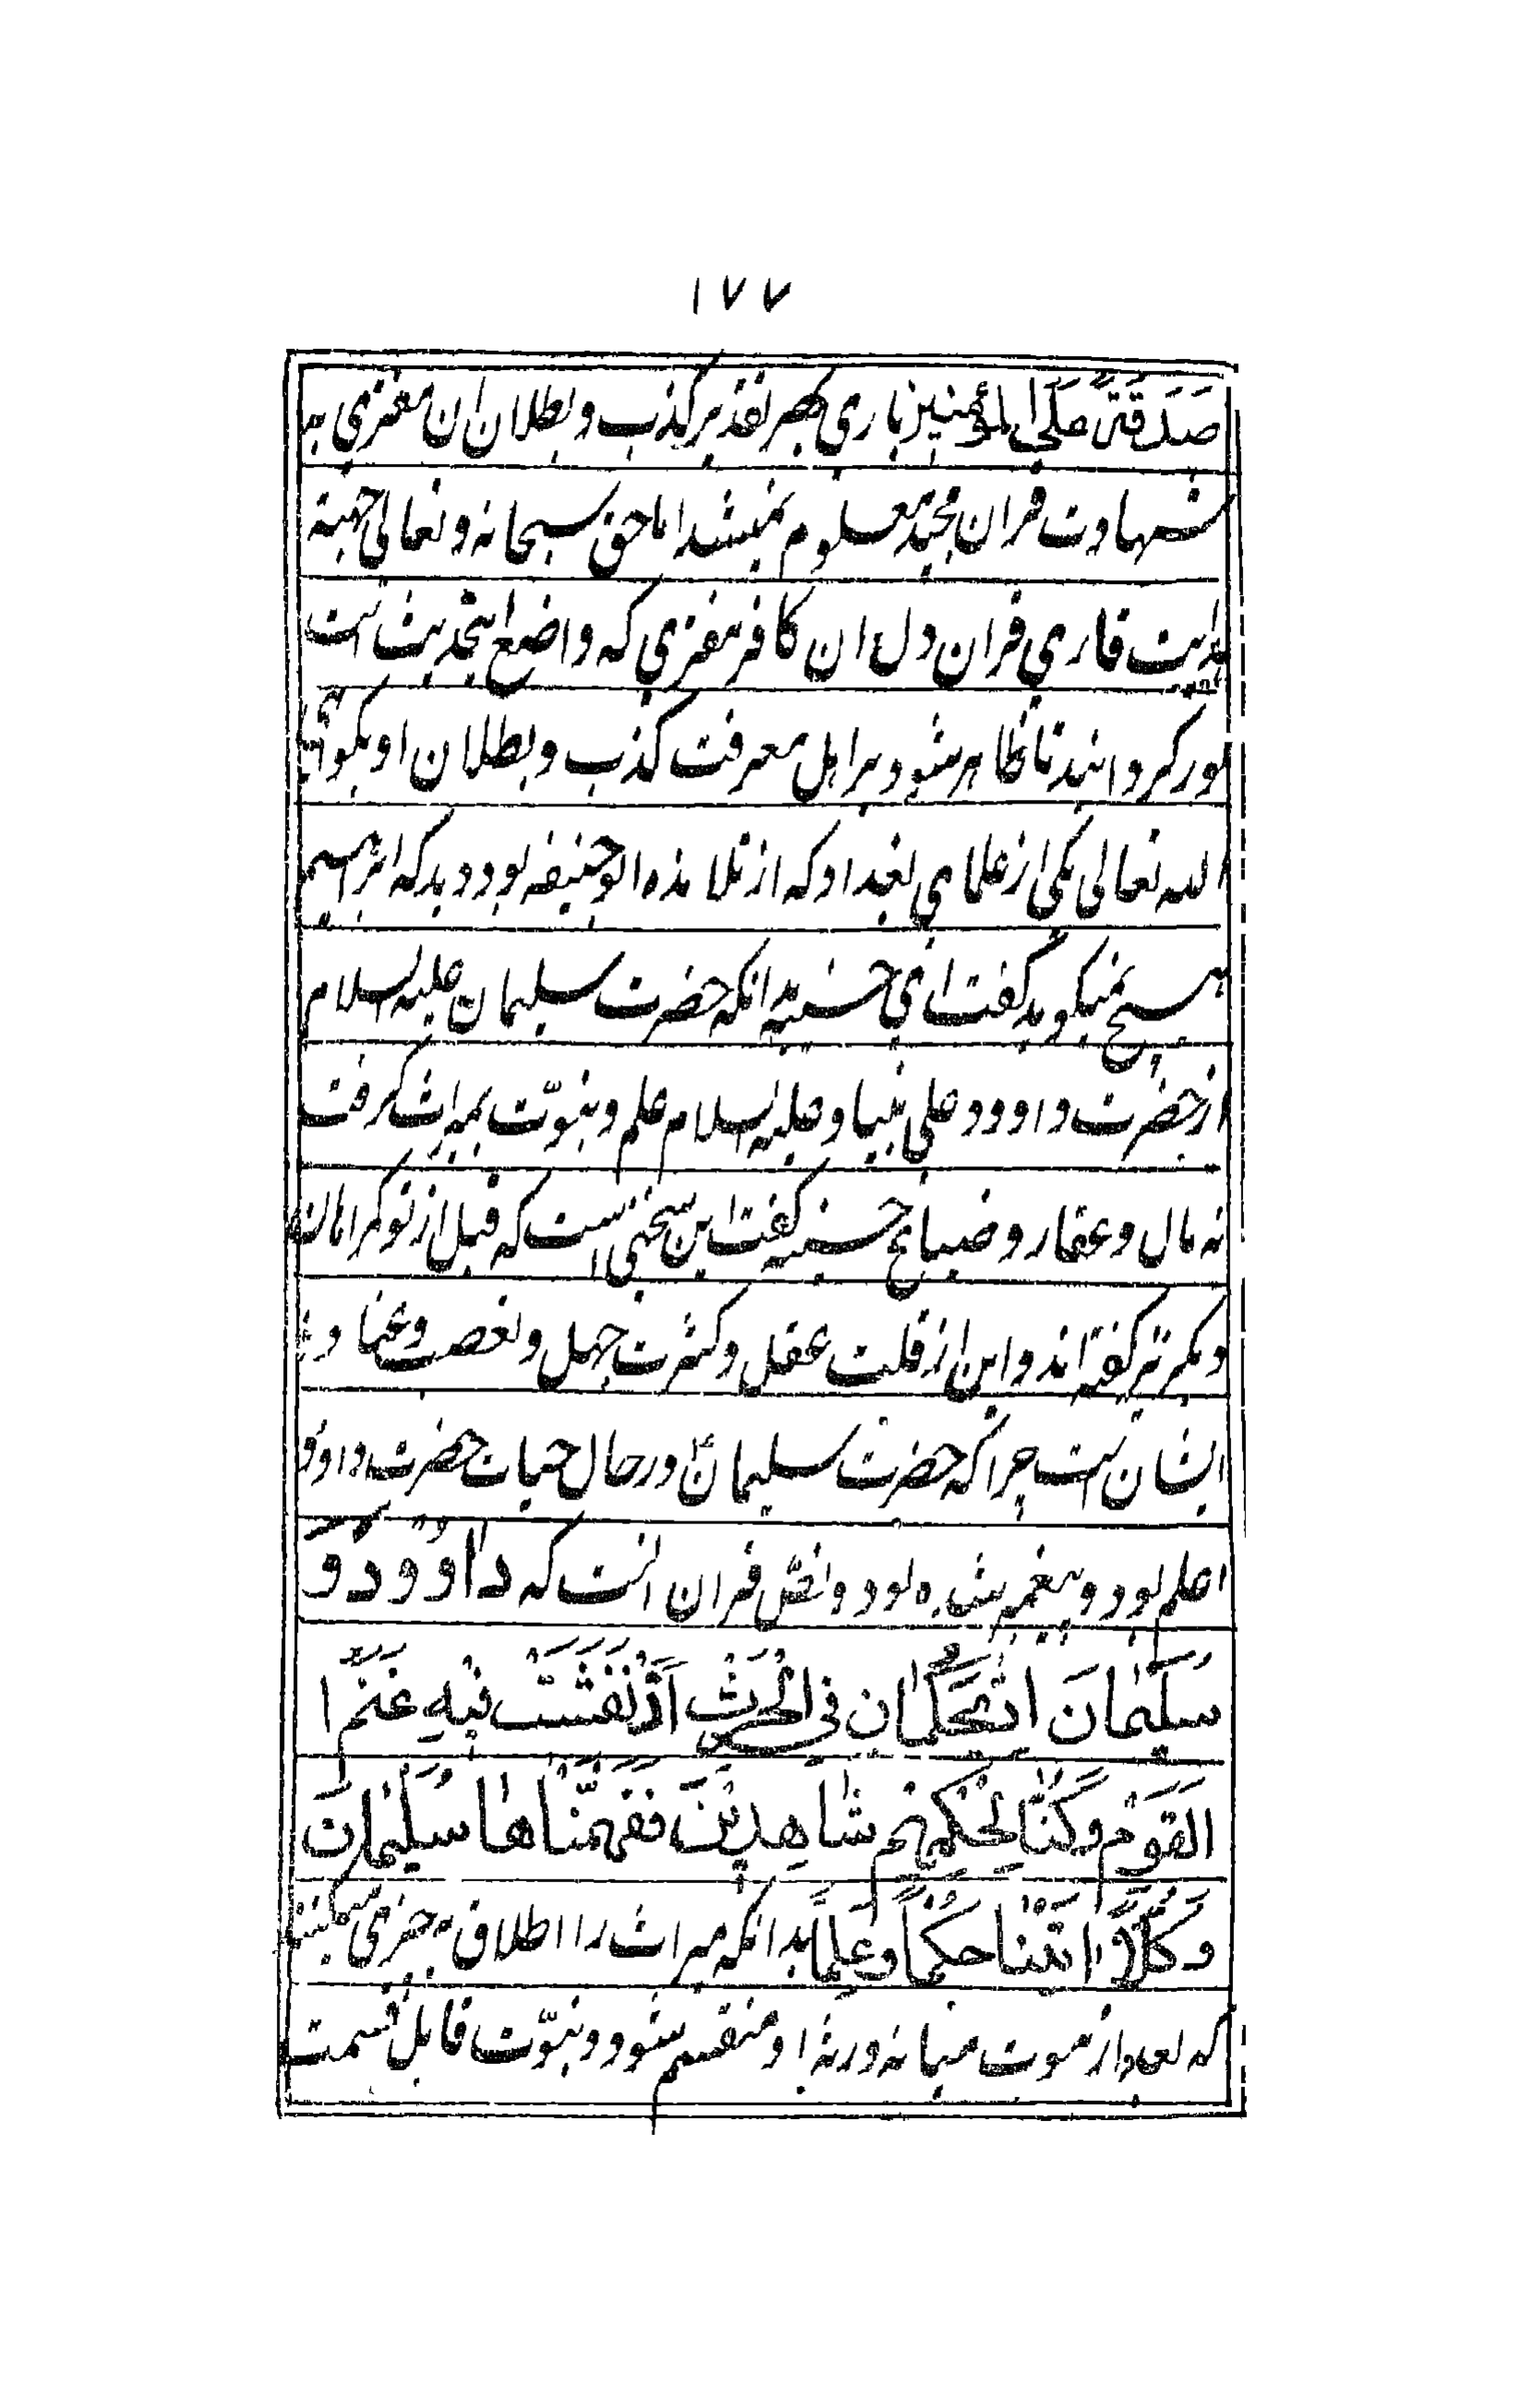 ۱۷۷
صَدَقَةً عَلَى المؤمنین باری بهر تقدیر کذب و بطلان ان مفتری به
شهادت قران مجید معلوم نمیشد اما حق سبحانه و تعالی جهة
هدایت قاری قران دل ان کافر مفتری که واضع اینحدیث است
کور کردانید تا ظاهر شود بر اهل معرفت کذب و بطلان او
الله تعالی یکی از علمای بغداد که از تلامذه ابوحنیفه بود دید که ابراهیم
هیچ نمیکوید گفت ای حسنیه بدانکه حضرت سلیمان علیه السلام
از حضرت داوود علی نبینا و علیه السلام علم و نبوّت بمیراث گرفت
نه مال و عقار و ضیاع حسنیه گفت این سخنی است که قبل از تو
دیگر نیز گفته اند و این از قلت عقل و کثرت جهل و تعصب و عناد
ایشان است چرا که حضرت سلیمانؑ در حال حیات حضرت داوود
اعلم بود و پیغمبر شده بود و نصّ قران انست که دٰاوُودَ وَ
سُلَیْمٰانَ اِذْ یَحْکُمٰانِ فِی الْحَرْثِ اِذْ نَفَشَتْ فیٖهِ غَنَمُ ا
القَوْمِ وَکُنّٰا لِحُکْمِهِمْ شٰاهِدیٖنَ فَفَهَّمْنٰاهٰا سُلَیْمٰانَ
وَکُلًّا اٰتَیْنٰا حُکْماً وَعِلْماً بدانکه میراث را اطلاق به چیزی میکنند
که بعد از موت میانه ورثه او منقسم شود و نبوّت قابل قسمت